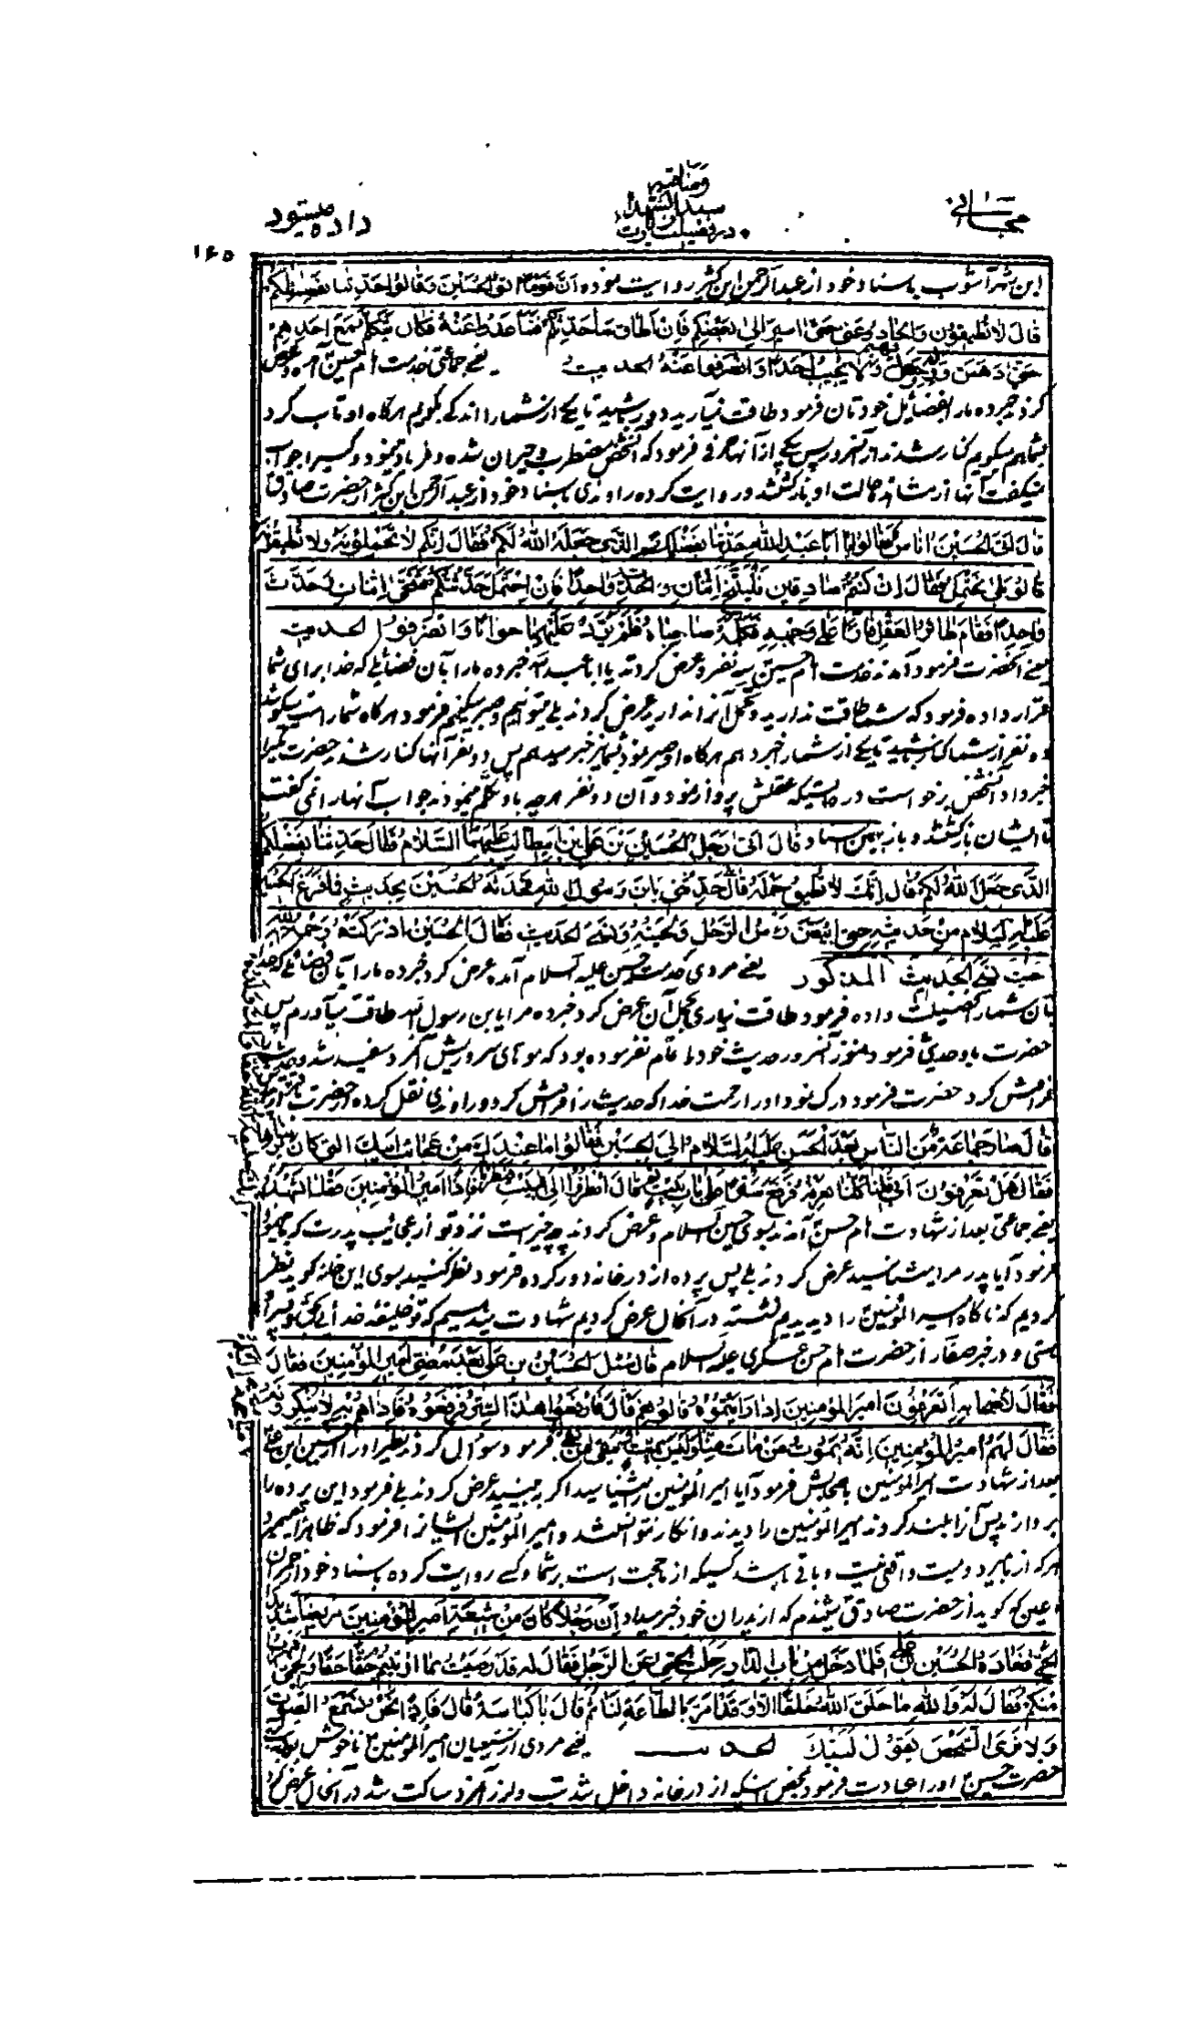 و مناقب
سید الشهدا
در فضیلت زیارت
مجانی
داده میشود
۱۶۵
ابن شهر آشوب باسناد خود از عبد الرحمن ابن کثیر روایت نموده انّ قوما اتوا الحسین وقالوا حدثنا بفضلکم
قال لا تطیقون وانحازوا عنی حتی اشیر الی بعضکم فان اطاق ساحدثکم فتباعدوا عنه فکان یتکلم مع احدهم
حتی دهش و وله وجعل یهیم ولا یجیب احدا وانصرفوا عنه الحدیث یعنی جماعتی خدمت امام حسین آمده عرض
کردند خبر ده ما را بفضایل خودتان فرمود طاقت نیآرید دور شوید تا یکی از شما را اندکی بگویم هرگاه او تاب کرد
بشما هم میگویم کنار شدند از آنسرور پس یکی از آنها حرفی فرمود که آنشخص مضطرب و حیران شده و فریاد نمود و کسیرا جواب
نمیگفت آنها از مشاهده حالت او بازگشتند و روایت کرده راوندی باسناد خود از عبد الرحمن ابن کثیر از حضرت صادق
قال اتی الحسین اناس فقالوا یا ابا عبد الله حدثنا بفضلکم الذی جعله الله لکم فقال انکم لا تحتملونه ولا تطیقونه
قالوا بلی نحتمل فقال ان کنتم صادقین فلیتنح اثنان واحدث واحدا فان احتمل حدثتکم فتنحی اثنان وحدث
واحدا فقام طائر العقل ومر علی وجهه فکلمه صاحباه فلم یرد علیهما جوابا وانصرفوا الحدیث
یعنی آنحضرت فرمود آمدند خدمت امام حسین سه نفر و عرض کردند یا ابا عبد الله خبر ده ما را بآن فضائلی که خدا برای شما
قرار داده فرمود که شما طاقت ندارید و تحمل آنرا ندارید عرض کردند بلی میتوانیم و صبر میکنیم فرمود هرگاه شما راست میگوئید
دو نفر از شما کنار شوید تا یکی از شما را خبر دهم هرگاه او صبر نمود بشما نیز خبر میدهم پس دو نفر آنها کنار شدند حضرت یکیرا
خبر داد آنشخص برخواست در حالتیکه عقلش پرواز نموده و آن دو نفر هرچه باو تکلم مینمودند جواب آنها را نمی گفت
تا ایشان بازگشتند و باز بهمین اسناد قال اتی رجل الحسین بن علی بن ابیطالب علیهما السلام فقال حدثنا بفضلکم
الذی جعل الله لکم قال انک لا تطیق حمله قال حدثنی یابن رسول الله فحدثه الحسین بحدیث فما فرغ الحسین
علیه السلام من حدیثه حتی ابیض راس الرجل ولحیته وانسی الحدیث فقال الحسین ادرکته رحمة الله
حیث نسی الحدیث المذکور یعنی مردی خدمت حسین علیه السلام آمده عرض کرد خبر ده ما را بآن فضائلی که خدا
بآن شما را فضیلت داده فرمود طاقت نیاری بحمل آن عرض کرد خبر ده مرا یابن رسول الله طاقت میآورم پس
حضرت باو حدیثی فرمود هنوز آنسرور حدیث خود را تمام نفرموده بود که موهای سر و ریش آنمرد سفید شد و حدیث
فراموش کرد حضرت فرمود درک نمود او را رحمت خدا که حدیث را فراموش کرد و راوندی نقل کرده از حضرت باقر
قال صار جماعة من الناس بعد الحسن علیه السلام الی الحسین فقالوا ما عندک من عجائب ابیک التی کان یریناها
فقال هل تعرفون ابی قلنا کلنا نعرفه فرفع سترا علی باب بیت ثم قال انظروا الی البیت فنظرنا فاذا امیر المؤمنین فقلنا نشهد
یعنی جماعتی بعد از شهادت امام حسن آمدند بسوی حسین علیه السلام و عرض کردند چه چیز است نزد تو از عجائب پدرت که بما مینمود
فرمود آیا پدر مرا میشناسید عرض کردند بلی پس پرده از در خانه دور کرده فرمود نظر کنید بسوی این خانه گوید نظر
کردیم که ناگاه امیر المؤمنین را دیدیم نشسته در آنحال عرض کردیم شهادت میدهیم که تو خلیفه خدائی
هستی و در خبر صفار از حضرت امام حسن عسکری علیه السلام قال سئل الحسین بن علی بعد مضی امیر المؤمنین فقال
فقال لاصحابه أتعرفون امیر المؤمنین اذا رایتموه قالوا نعم قال فارفعوا هذا الستر فرفعوه فاذا هم به لا ینکرونه
فقال لهم امیر المؤمنین انه یموت من مات منا ولیس بمیت ویبقی من بقی فرمود سؤال کردند نظیر او را از حسین ابن علی
بعد از شهادت امیر المؤمنین باصحابش فرمود آیا امیر المؤمنین را میشناسید اگر به بینید عرض کردند بلی فرمود این پرده را
بردارید پس آنرا بلند کردند امیر المؤمنین را دیدند و انکار نتوانستند و امیر المؤمنین ایشانرا فرمود که ظاهرا میمیرد
هرکه از ما میرد و میت واقعی نیست و باقی باشد کسیکه از ما حجت است بر شما و کسی روایت کرده باسناد خود از حمران
اعین که گوید از حضرت صادق شنیدم که از پدران خود خبر میداد ان رجلا کان من شیعة امیر المؤمنین مریضا شدید
الحمی فعاده الحسین بن علی فلما دخل من باب الدار رحلت الحمی عن الرجل فقال له قد رضیت بما اوتیتم حقا حقا والحمی
منکم فقال له والله ما خلق الله خلقا الا وقد امره بالطاعة لنا ثم قال یا کباسة قال فاذا نحن نسمع الصوت
ولا نری الشخص یقول لبیک الحدیث یعنی مردی از شیعیان امیر المؤمنین ناخوش بود
حضرت حسین او را عیادت فرمود بمحض اینکه از در خانه داخل شد تب و لرز آنمرد ساکت شد در آنحال عرض کرد